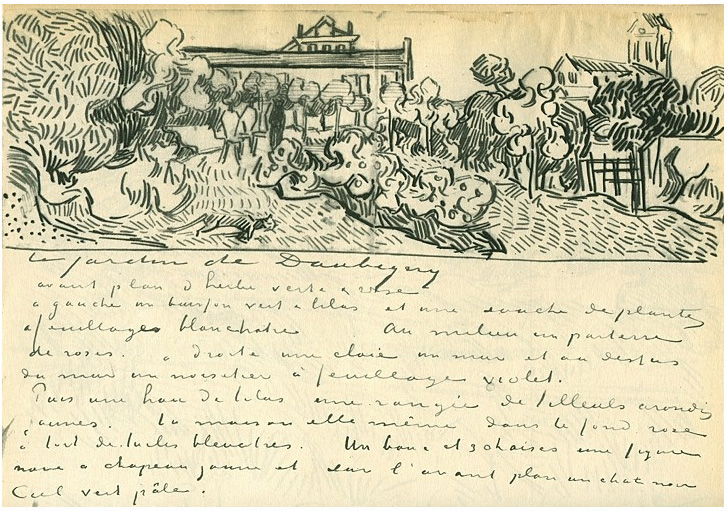 Le jardin de Daubigny
avant plan d'herbe verte & rose
a gauche un buisson vert & lilas et une souche de plantes
a feuillages blanchatre. Au milieu un parterre
de roses. a droite une claie un mur et au dessus
du mur un noisetier à feuillage violet.
Puis une haie de lilas une rangée de tilleuls arrondis
jaunes. La maison elle même dans le fond rose
à toit de tuiles bleuatres. Un banc et 3 chaises une figure
noire à chapeau jaune et sur l'avant plan un chat noir
Ciel vert pâle.